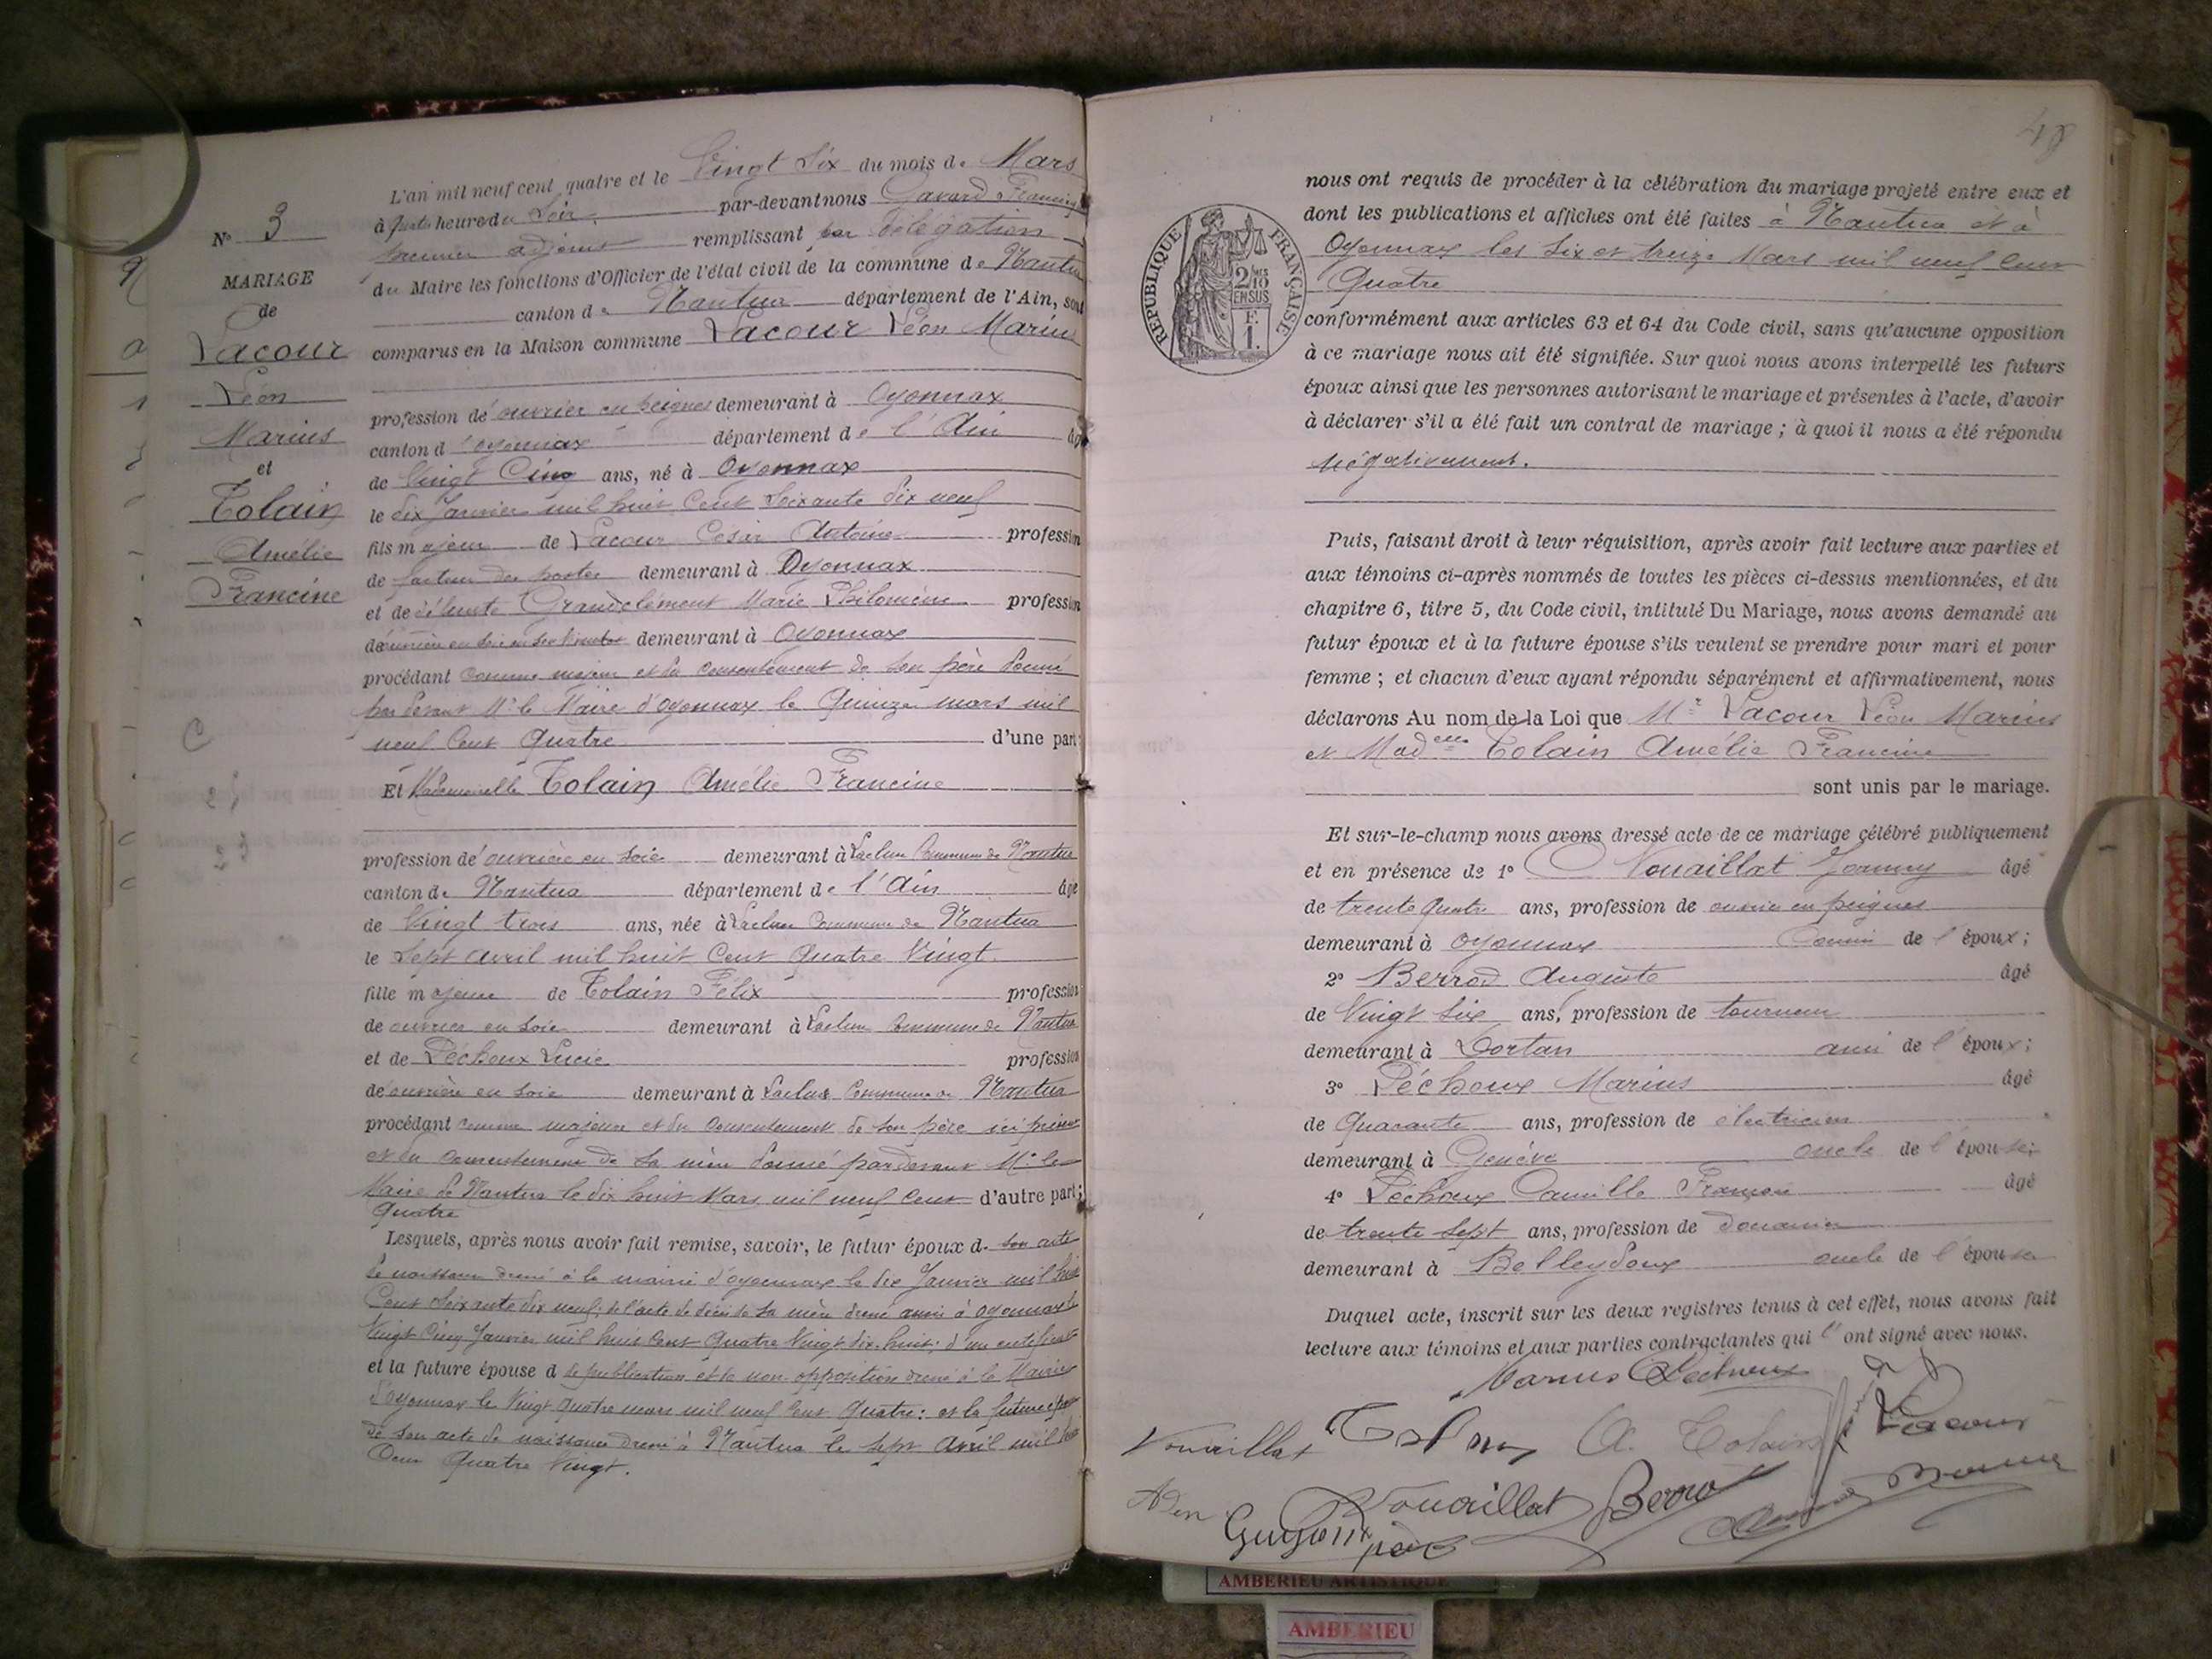 L'an mil neuf cent quatre et le Vingt Six du mois de Mars
à quatre heure du Soir par-devant nous Gavard
premier adjoint remplissant par délégation
du Maire les fonctions d'Officier de l'état civil de la commune de Nantua
canton de Nantua département de l'Ain, sont
comparus en la Maison commune Lacour Léon Marius
N° 3
MARIAGE
de
Lacour
Léon
Marius
et
Tolain
Amélie
Francine
profession d'ouvrier en peignes demeurant à Oyonnax
canton d'oyonnax département de l'Ain âgé
de Vingt Cinq ans, né à Oyonnax
le dix Janvier mil huit Cent Soixante dix neuf
fils majeur de Lacour César Antoine profession
de facteur des postes demeurant à Oyonnax
et de défunte Grandclément Marie Philomène profession
demeurant à Oyonnax
procédant comme majeur et du consentement de son père donné
par devant Mr le Maire d'oyonnax le Quinze mars mil
neuf Cent Quatre d'une part;
Et Mademoiselle Tolain Amélie Francine
profession d'ouvrière en soie demeurant à Lacluse Commune de Nantua
canton de Nantua département de l'Ain âgé
de Vingt trois ans, née à Lacluse Commune de Nantua
le Sept avril mil huit Cent Quatre Vingt
fille majeure de Tolain Félix profession
de ouvrier en soie demeurant à Lacluse Commune de Nantua
et de Péchoux Lucie profession
d'ouvrière en soie demeurant à Lacluse Commune de Nantua
procédant comme majeure et du consentement de son père ici présent
et du consentement de sa mère donné par devant Mr le
Maire de Nantua le dix huit Mars mil neuf Cent d'autre part;
Quatre
Lesquels, après nous avoir fait remise, savoir, le futur époux d. son acte
de naissance dressé à la mairie d'oyonnax le dix Janvier mil huit
Cent Soixante dix neuf; de l'acte de décès de sa mère dressé aussi à oyonnax le
Vingt Cinq Janvier mil huit Cent Quatre Vingt dix-huit; d'un certificat
et la future épouse d de publication et de non opposition dressé à la Mairie
d'oyonnax le Vingt quatre mars mil neuf Cent Quatre: et la future épouse
de son acte de naissance dressé à Nantua le Sept Avril mil huit
Cent Quatre Vingt.
48
RÉPUBLIQUE FRANÇAISE
2/10
EN SUS
F.
1.
nous ont requis de procéder à la célébration du mariage projeté entre eux et
dont les publications et affiches ont été faites à Nantua et à
Oyonnax les Six et treize Mars mil neuf Cent
Quatre
conformément aux articles 63 et 64 du Code civil, sans qu'aucune opposition
à ce mariage nous ait été signifiée. Sur quoi nous avons interpellé les futurs
époux ainsi que les personnes autorisant le mariage et présentes à l'acte, d'avoir
à déclarer s'il a été fait un contrat de mariage; à quoi il nous a été répondu
négativement.
Puis, faisant droit à leur réquisition, après avoir fait lecture aux parties et
aux témoins ci-après nommés de toutes les pièces ci-dessus mentionnées, et du
chapitre 6, titre 5, du Code civil, intitulé Du Mariage, nous avons demandé au
futur époux et à la future épouse s'ils veulent se prendre pour mari et pour
femme; et chacun d'eux ayant répondu séparément et affirmativement, nous
déclarons Au nom de la Loi que Mr Lacour Léon Marius
et Madelle Tolain Amélie Francine
sont unis par le mariage.
Et sur-le-champ nous avons dressé acte de ce mariage célébré publiquement
et en présence de 1° Vouaillat Joanny âgé
de trente quatre ans, profession de ouvrier en peignes
demeurant à oyonnax Cousin de l'époux;
2° Berrod Auguste âgé
de Vingt Six ans, profession de tourneur
demeurant à Dortan ami de l'époux;
3° Péchoux Marius âgé
de Quarante ans, profession de électricien
demeurant à Genève oncle de l'épouse;
4° Péchoux Camille François âgé
de trente Sept ans, profession de douanier
demeurant à Belleydoux oncle de l'épouse
Duquel acte, inscrit sur les deux registres tenus à cet effet, nous avons fait
lecture aux témoins et aux parties contractantes qui l'ont signé avec nous.
Marius Péchoux
Vouaillat Tolain A. Tolain Lacour
Vouaillat Berrod
Guyon
AMBERIEU ARTISTIQUE
AMBERIEU